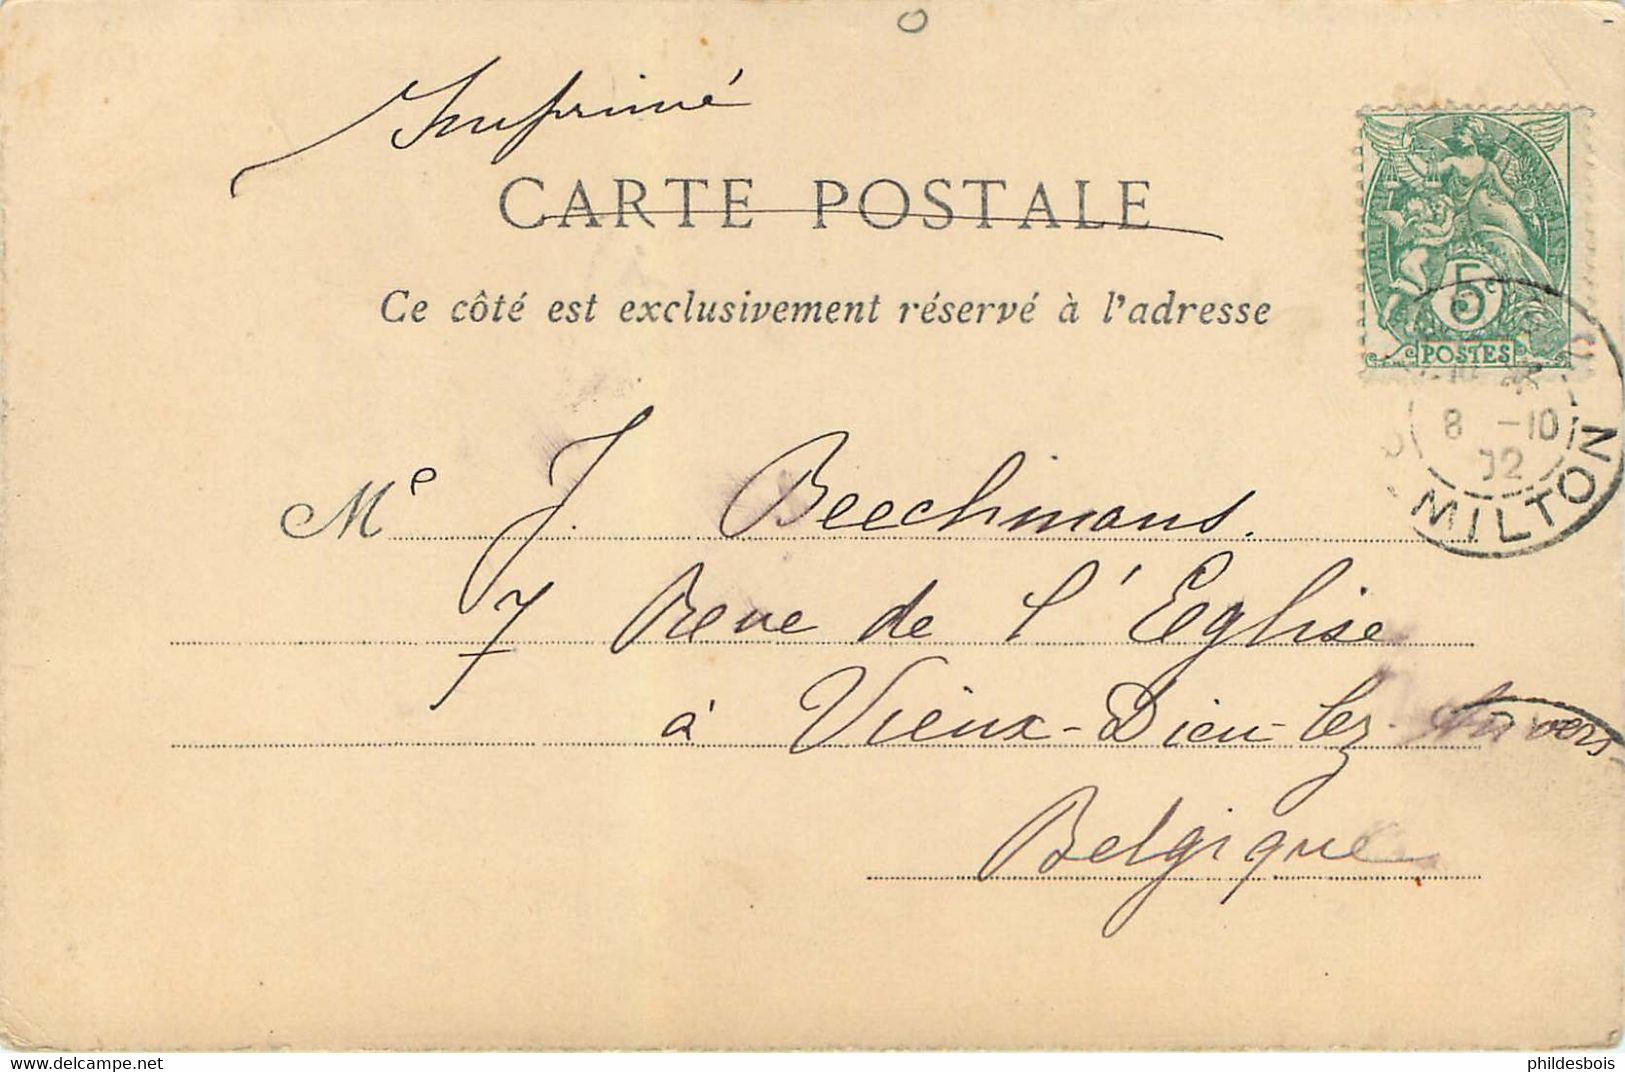 Imprimé
CARTE POSTALE
Ce côté est exclusivement réservé à l'adresse
5c
POSTES
8 -10
02
MILTON
Me J. Beeckmans.
7 Rue de l'Eglise
à Vieux-Dieu-lez-Anvers
Belgique
https://www.delcampe.net
phildesbois